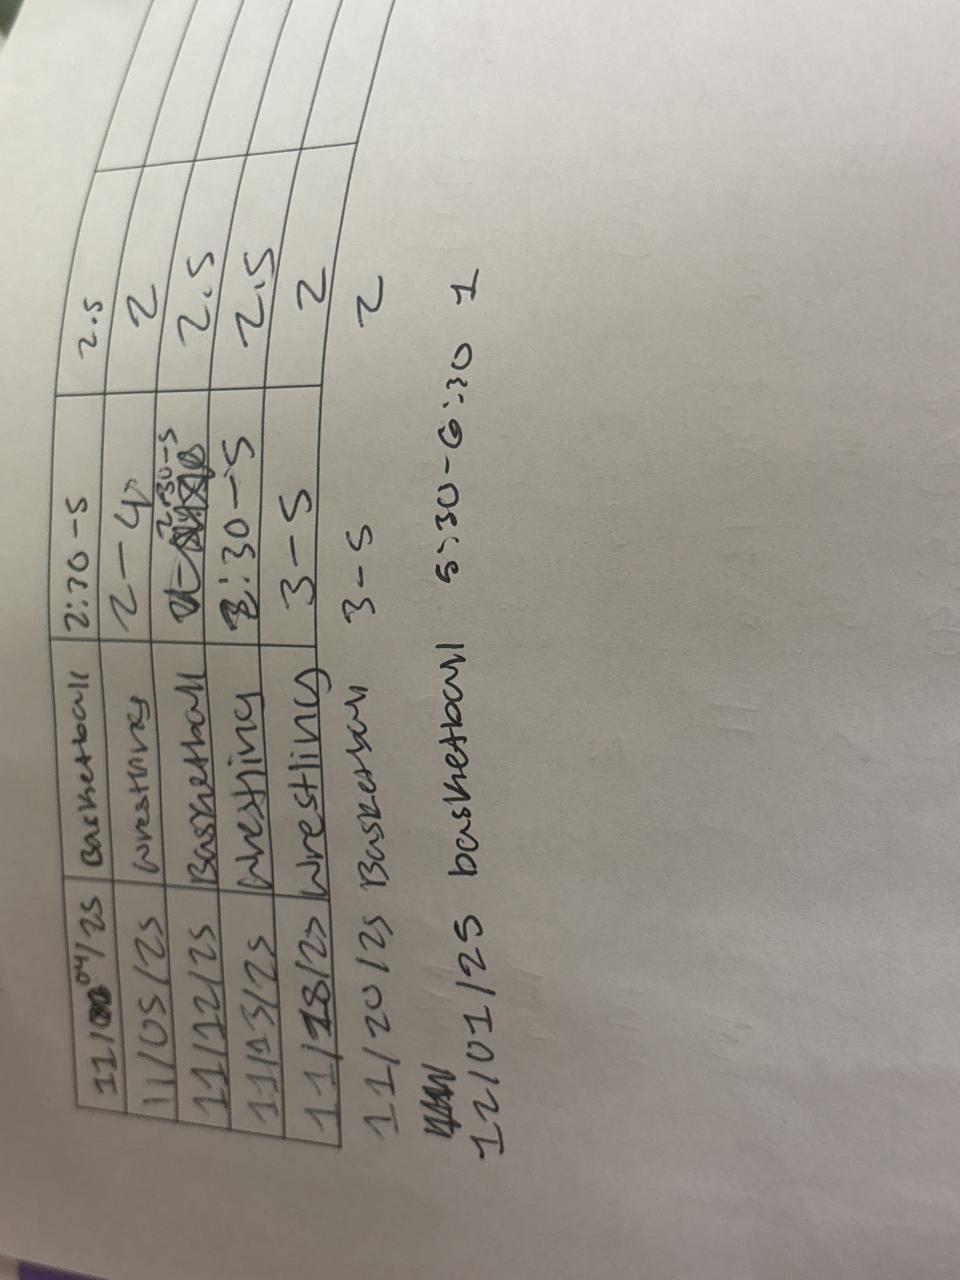 11/04/25 Basketball 2:30-5 2.5
11/05/25 Wrestling 2-4 2
11/12/25 Basketball 2:30-5 2.5
11/13/25 Wrestling 2:30-5 2.5
11/18/25 Wrestling 3-5 2
11/20/25 Basketball 3-5 2
12/01/25 basketball 5:30-6:30 1